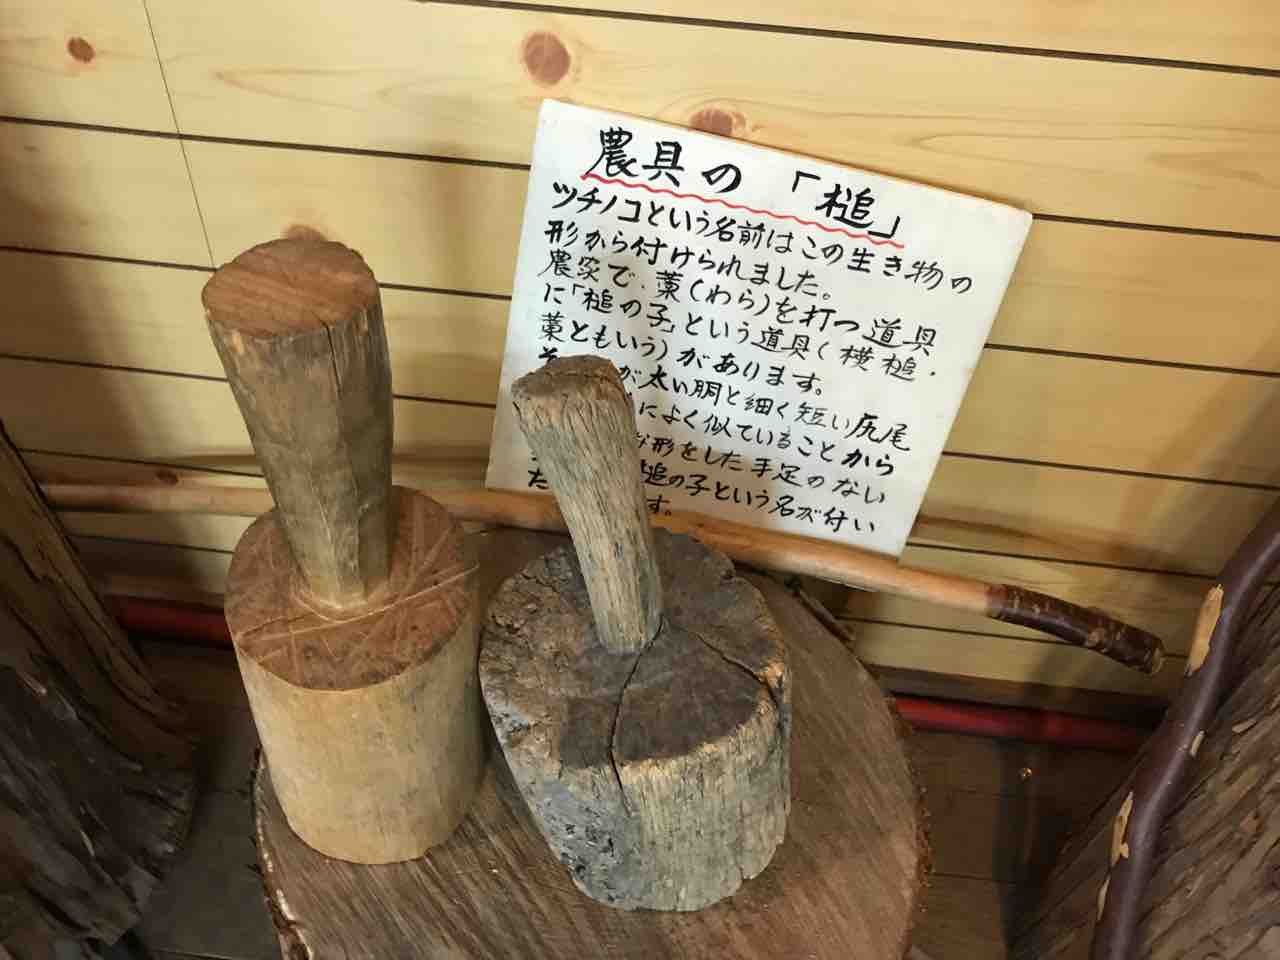 農具の「槌」
ツチノコという名前はこの生き物の
形から付けられました。
農家で、藁(わら)を打つ道具
に「槌の子」という道具(横槌・
藁ともいう)があります。
が太い胴と細く短い尻尾
によく似ていることから
な形をした手足のない
槌の子という名が付い
た す。